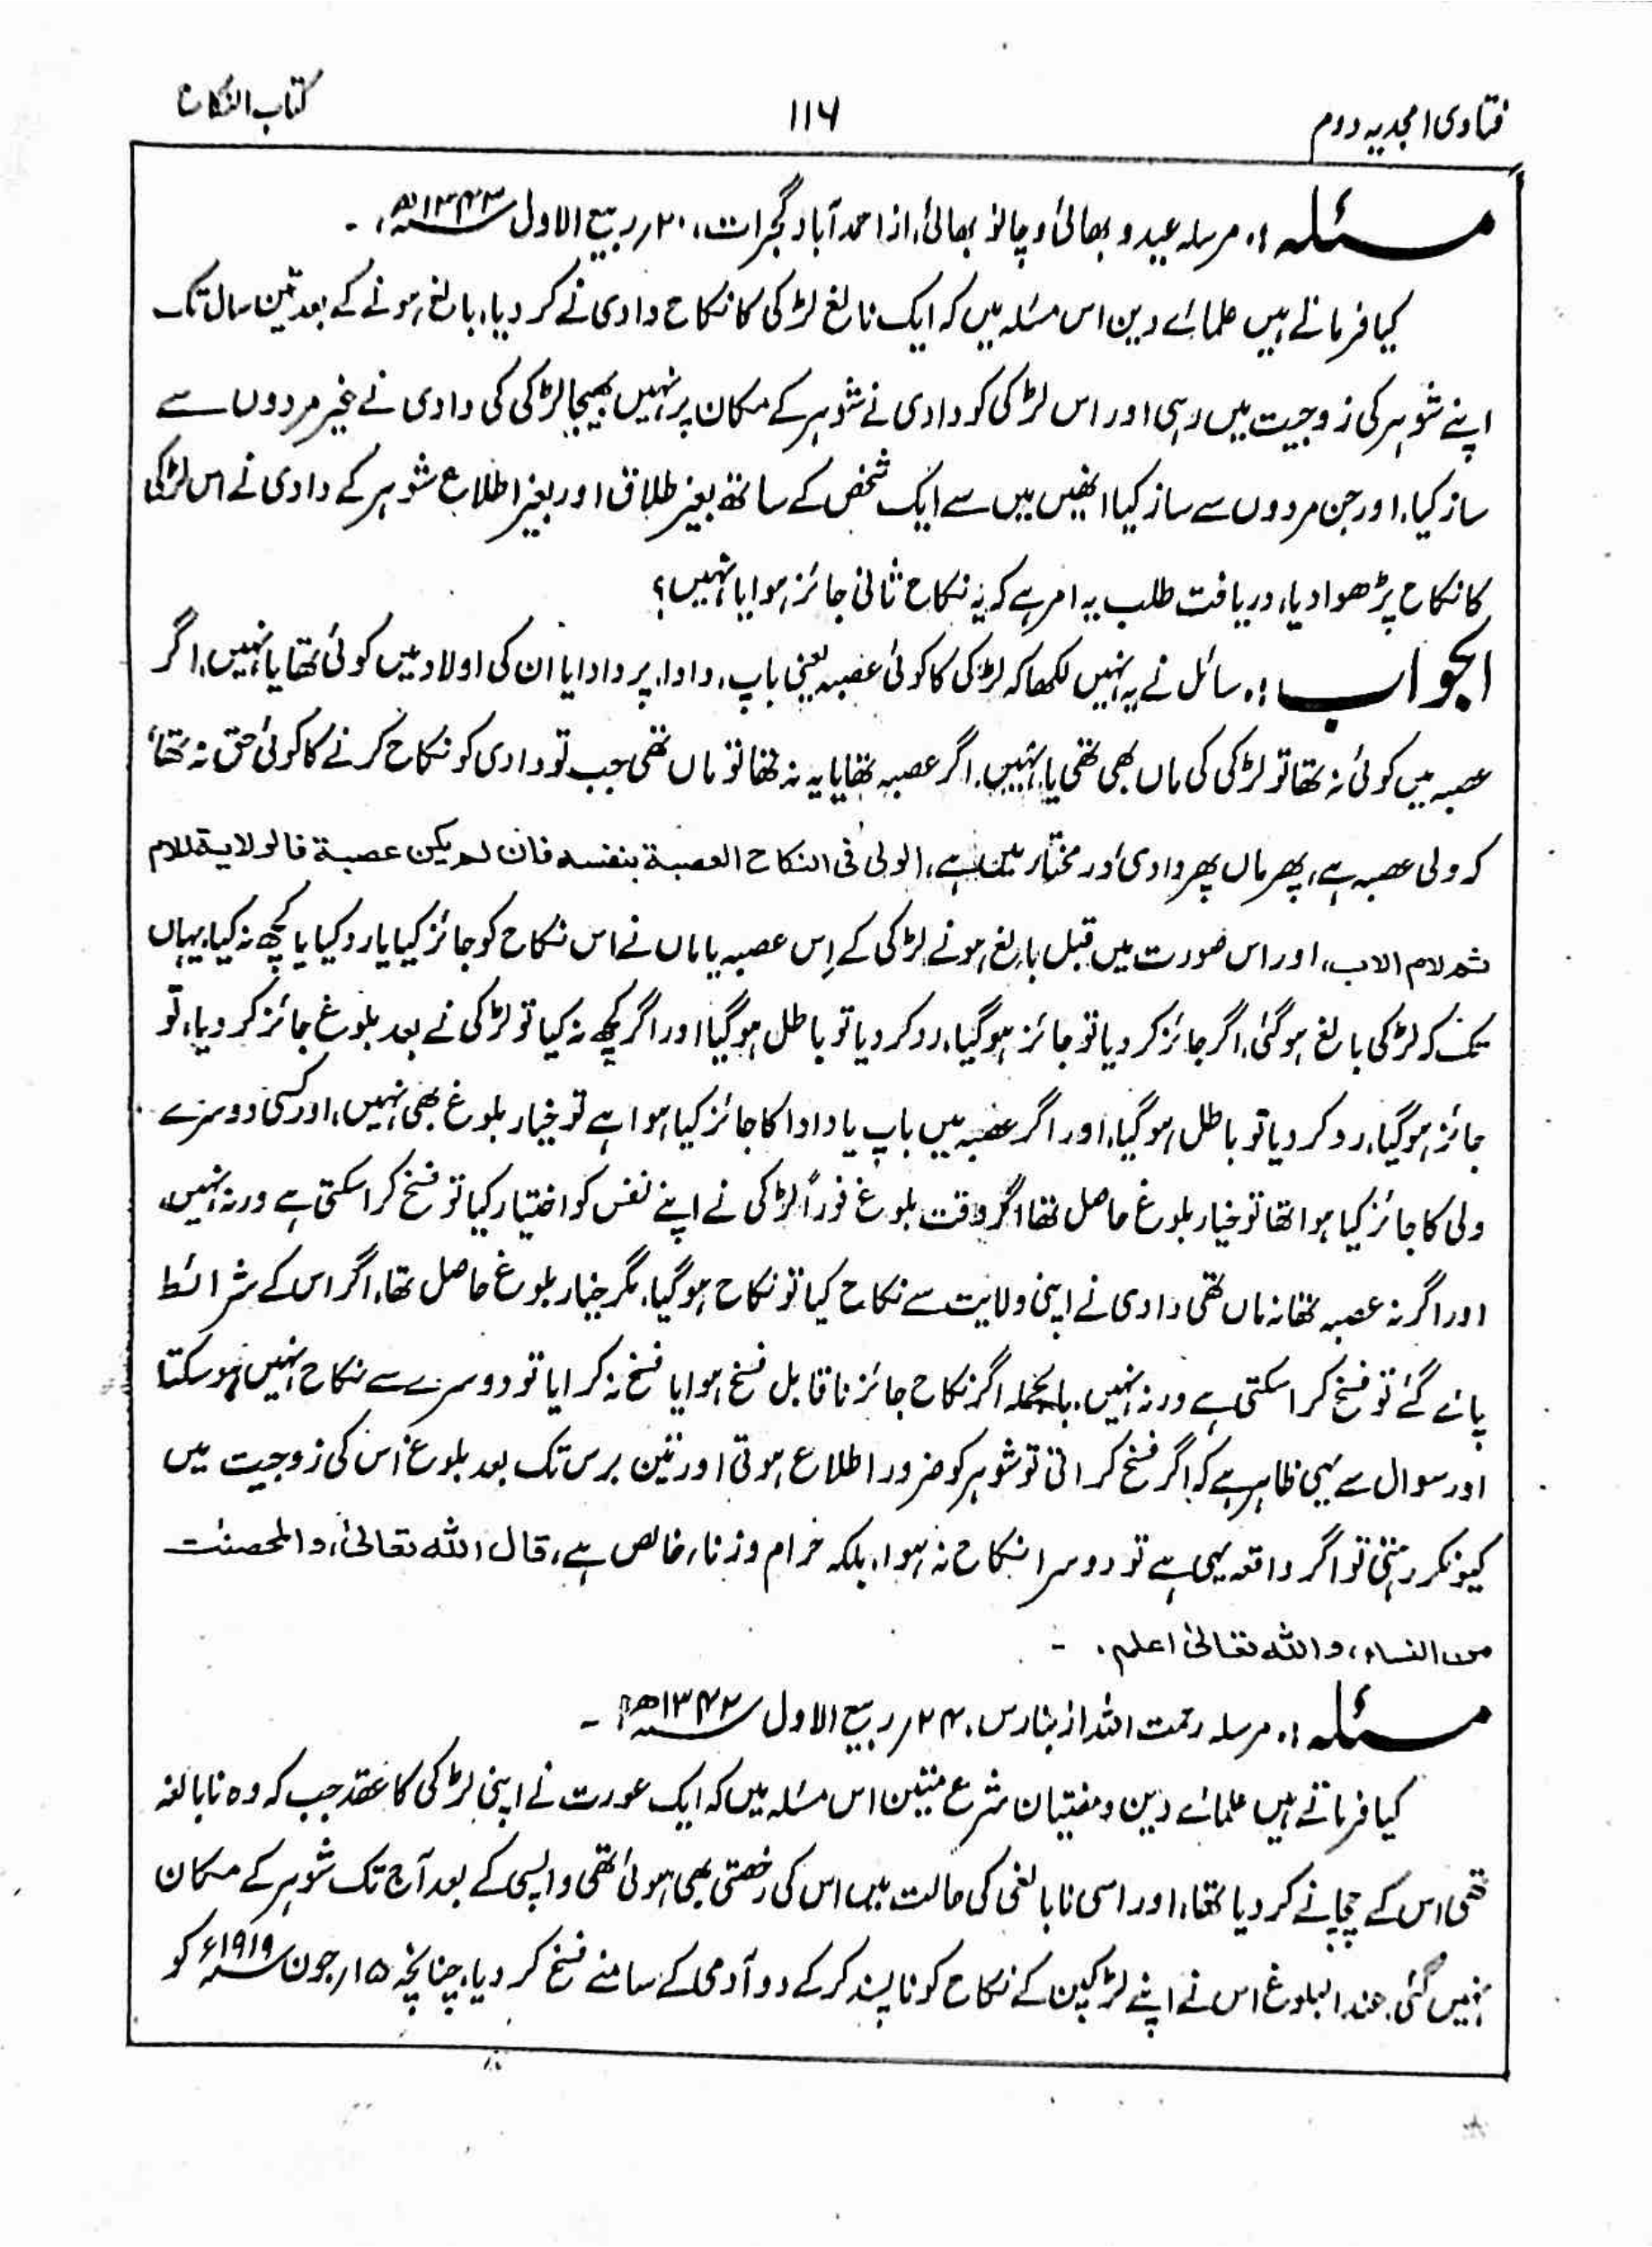 فتاوی امجدیہ دوم
۱۱۶
کتاب النکاح
مسئلہ :. مرسلہ عیدو بھائی و چاند بھائی، از احمد آباد گجرات، ۲۰/ ربیع الاول ۱۳۴۳ھ ۔
کیا فرماتے ہیں علمائے دین اس مسئلہ میں کہ ایک نابالغ لڑکی کا نکاح دادی نے کر دیا، بالغ ہونے کے بعد تین سال تک
اپنے شوہر کی زوجیت میں رہی اور اس لڑکی کو دادی نے شوہر کے مکان پر نہیں بھیجا لڑکی کی دادی نے غیر مردوں سے
ساز کیا، اور جن مردوں سے ساز کیا انھیں میں سے ایک شخص کے ساتھ بغیر طلاق اور بغیر اطلاع شوہر کے دادی نے اس لڑکی
کا نکاح پڑھوا دیا، دریافت طلب یہ امر ہے کہ یہ نکاح ثانی جائز ہوا یا نہیں؟
الجواب :. سائل نے یہ نہیں لکھا کہ لڑکی کا کوئی عصبہ یعنی باپ، دادا، پردادا یا ان کی اولاد میں کوئی تھا یا نہیں، اگر
عصبہ میں کوئی نہ تھا تو لڑکی کی ماں بھی تھی یا نہیں، اگر عصبہ تھا یا یہ نہ تھا تو ماں تھی جب تو دادی کو نکاح کرنے کا کوئی حق نہ تھا،
کہ ولی عصبہ ہے، پھر ماں پھر دادی، در مختار میں ہے، الولی فی النکاح العصبة بنفسه فان لم یکن عصبة فالولایة للام
ثم لام الاب، اور اس صورت میں قبل بالغ ہونے لڑکی کے اِس عصبہ یا ماں نے اس نکاح کو جائز کیا یا رد کیا یا کچھ نہ کیا، یہاں
تک کہ لڑکی بالغ ہوگئی، اگر جائز کر دیا تو جائز ہوگیا، رد کر دیا تو باطل ہوگیا اور اگر کچھ نہ کیا تو لڑکی نے بعد بلوغ جائز کر دیا، تو
جائز ہوگیا، رد کر دیا تو باطل ہوگیا، اور اگر عصبہ میں باپ یا دادا کا جائز کیا ہوا ہے تو خیار بلوغ بھی نہیں، اور کسی دوسرے
ولی کا جائز کیا ہوا تھا تو خیار بلوغ حاصل تھا اگر وقت بلوغ فوراً لڑکی نے اپنے نفس کو اختیار کیا تو فسخ کرا سکتی ہے ورنہ نہیں،
اور اگر نہ عصبہ تھا نہ ماں تھی دادی نے اپنی ولایت سے نکاح کیا تو نکاح ہوگیا، مگر خیار بلوغ حاصل تھا، اگر اس کے شرائط
پائے گئے تو فسخ کرا سکتی ہے ورنہ نہیں، بالجملہ اگر نکاح جائز ناقابل فسخ ہوا یا فسخ نہ کرایا تو دوسرے سے نکاح نہیں ہو سکتا
اور سوال سے یہی ظاہر ہے کہ اگر فسخ کراتی تو شوہر کو ضرور اطلاع ہوتی اور تین برس تک بعد بلوغ اس کی زوجیت میں
کیونکر رہتی تو اگر واقعہ یہی ہے تو دوسرا نکاح نہ ہوا، بلکہ حرام و زنا، خالص ہے، قال اللہ تعالیٰ، والمحصنٰت
من النساء، واللہ تعالیٰ اعلم ۔
مسئلہ :. مرسلہ رحمت اللہ از بنارس، ۲۴/ ربیع الاول ۱۳۴۲ھ ۔
کیا فرماتے ہیں علمائے دین و مفتیان شرع متین اس مسئلہ میں کہ ایک عورت نے اپنی لڑکی کا عقد جب کہ وہ نابالغہ
تھی اس کے چچا نے کر دیا تھا، اور اسی نابالغی کی حالت میں اس کی رخصتی بھی ہوئی تھی واپسی کے بعد آج تک شوہر کے مکان
نہیں گئی، عند البلوغ اس نے اپنے لڑکپن کے نکاح کو ناپسند کرکے دو آدمی کے سامنے فسخ کر دیا، چنانچہ ۱۵/ جون ۱۹۱۹ء کو